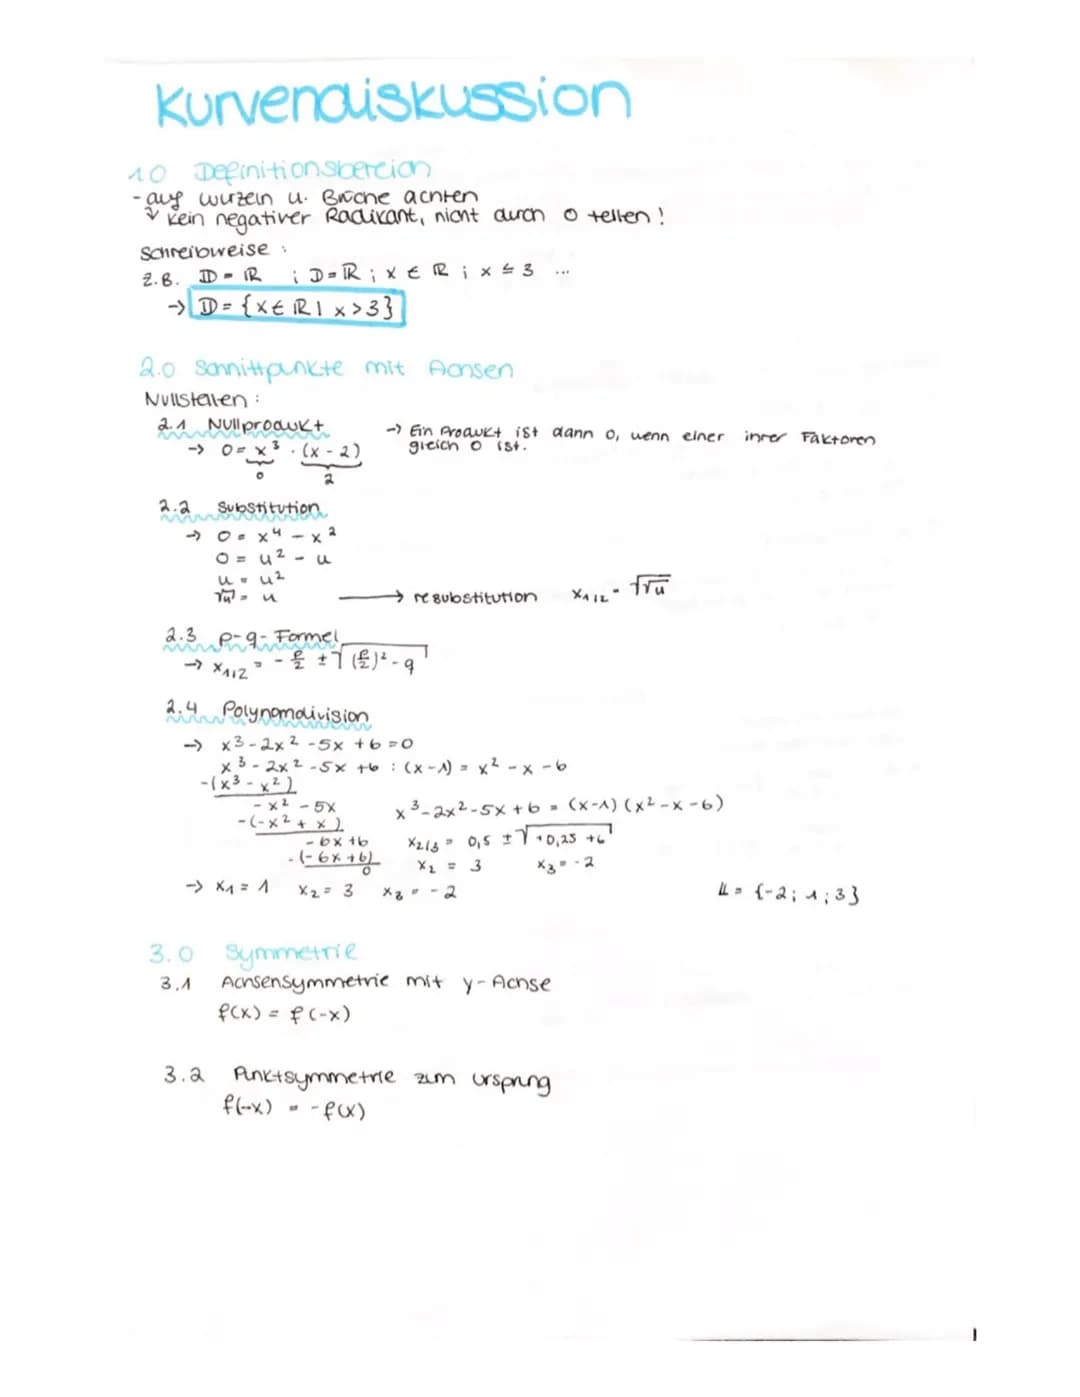 Kurvendiskussion
1.0 Definitionsbereich
- auf Wurzeln u. Brüche achten
↳ kein negativer Radikant, nicht durch 0 teilen!
Schreibweise :
z.B. 𝔻 = ℝ ; D = ℝ ; x ∈ ℝ ; x ≤ 3 ...
→ 𝔻 = {x ∈ ℝ | x > 3}
2.0 Schnittpunkte mit Achsen
Nullstellen :
2.1 Nullprodukt → Ein Produkt ist dann 0, wenn einer ihrer Faktoren
→ 0 = x³ · (x - 2) gleich 0 ist.
0 2
2.2 Substitution
→ 0 = x⁴ - x²
0 = u² - u
u = u²
√u = u → resubstitution x₁/₂ = √√u
2.3 p-q-Formel
→ x₁/₂ = - p/2 ± √(p/2)² - q
2.4 Polynomdivision
→ x³ - 2x² - 5x + 6 = 0
x³ - 2x² - 5x + 6 : (x - 1) = x² - x - 6
-(x³ - x²)
- x² - 5x x³ - 2x² - 5x + 6 = (x-1) (x² - x - 6)
-(-x² + x)
- 6x + 6 x₂/₃ = 0,5 ± √+0,25 + 6
-(-6x + 6) x₂ = 3 x₃ = -2
0
→ x₁ = 1 x₂ = 3 x₃ = -2 𝕃 = {-2; 1; 3}
3.0 Symmetrie
3.1 Achsensymmetrie mit y-Achse
f(x) = f(-x)
3.2 Punktsymmetrie zum Ursprung
f(-x) = -f(x)